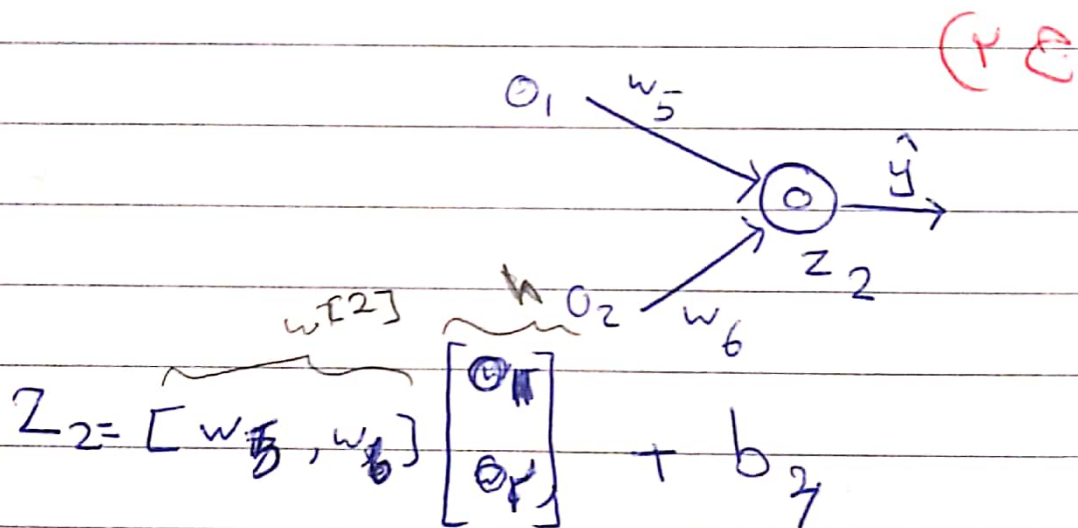 O₁ w₅
ŷ
z₂
O₂ w₆
w[2] h
Z₂ = [w₅, w₆] [O₁ O₂] + b₂